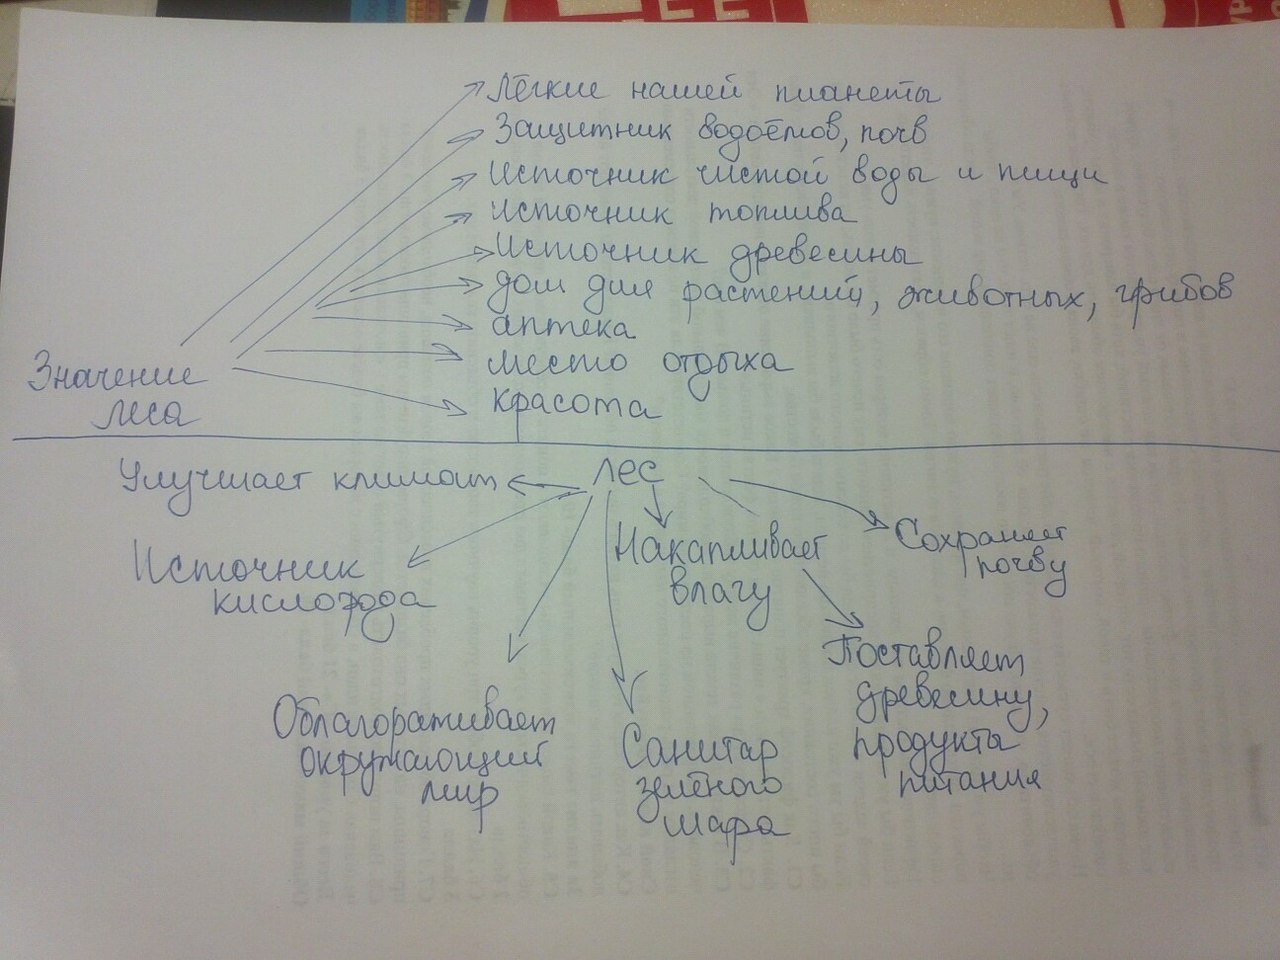 Лёгкие нашей планеты
Защитник водоёмов, почв
Источник чистой воды и пищи
Источник топлива
Источник древесины
дом для растений, животных, грибов
аптека
место отдыха
красота
Значение
леса
лес
Улучшает климат
Источник
кислорода
Накапливает
влагу
Сохраняет
почву
Облагораживает
окружающий
мир
Санитар
зелёного
шара
Поставляет
древесину,
продукты
питания